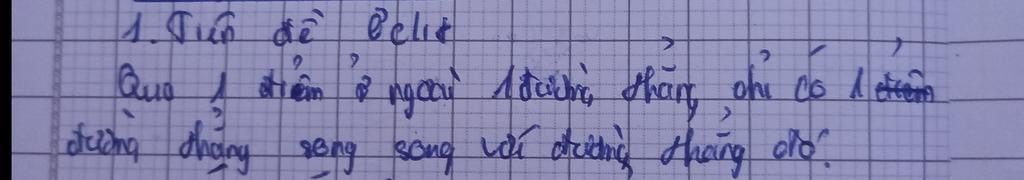 1. Tiên đề Ơclit
Qua 1 điểm ở ngoài 1 đường thẳng chỉ có 1 điểm
đường thẳng song song với đường thẳng đó.